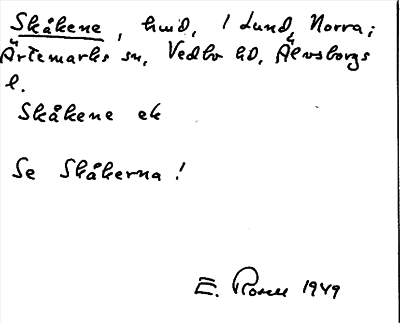 Skåkene, hmd, i Lund, Norra;
Ärtemarks sn, Vedbo hd, Älvsborgs
l.
Skåkene ek
Se Skåkerna!
E. Rosell 1949